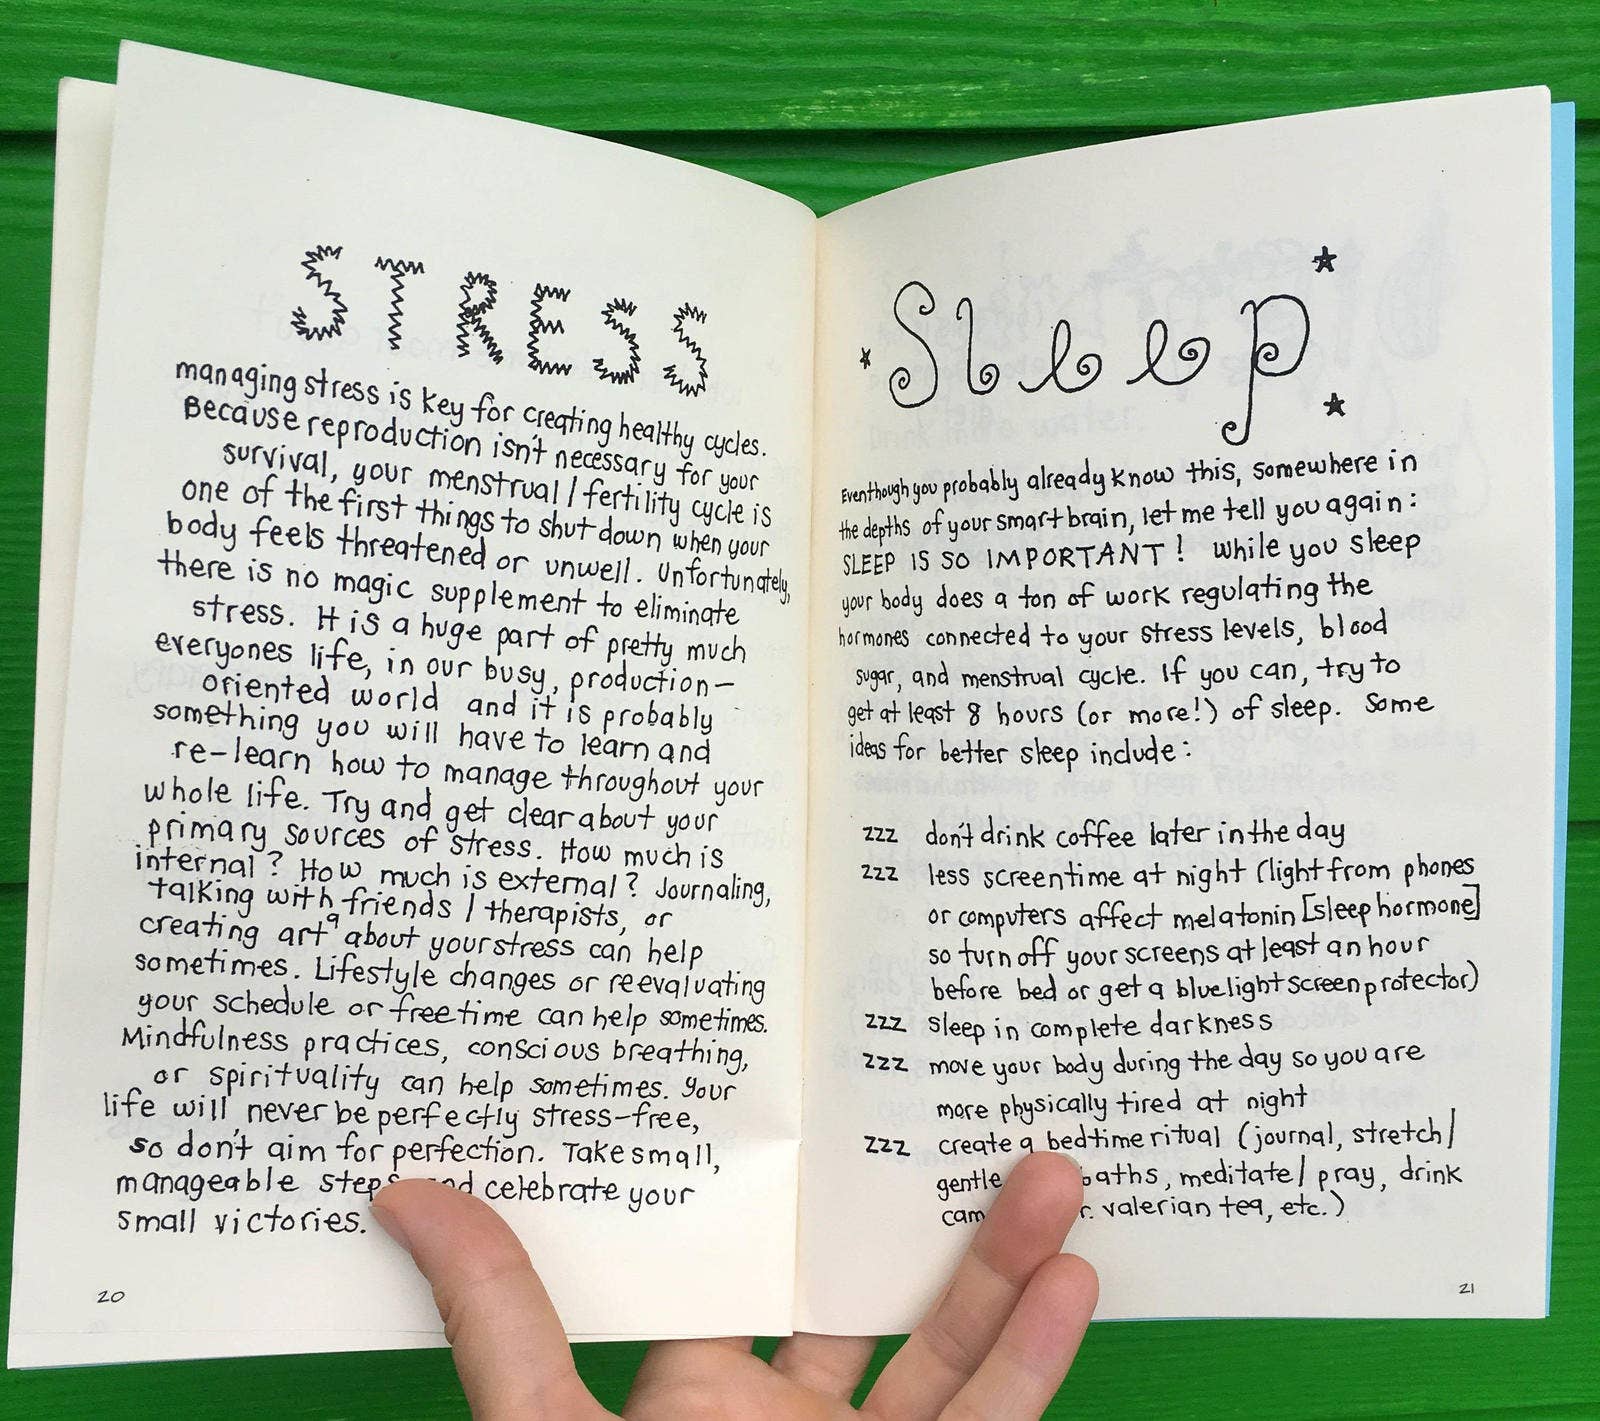 STRESS
managing stress is key for creating healthy cycles.
Because reproduction isn't necessary for your
survival, your menstrual/fertility cycle is
one of the first things to shut down when your
body feels threatened or unwell. Unfortunately,
there is no magic supplement to eliminate
stress. It is a huge part of pretty much
everyones life, in our busy, production-
oriented world and it is probably
something you will have to learn and
re-learn how to manage throughout your
whole life. Try and get clear about your
primary sources of stress. How much is
internal? How much is external? Journaling,
talking with friends/therapists, or
creating art about your stress can help
sometimes. Lifestyle changes or reevaluating
your schedule or freetime can help sometimes.
Mindfulness practices, conscious breathing,
or spirituality can help sometimes. Your
life will never be perfectly stress-free,
so don't aim for perfection. Take small,
manageable steps and celebrate your
small victories.
20
Sleep
Eventhough you probably already know this, somewhere in
the depths of your smart brain, let me tell you again:
SLEEP IS SO IMPORTANT! While you sleep
your body does a ton of work regulating the
hormones connected to your stress levels, blood
sugar, and menstrual cycle. If you can, try to
get at least 8 hours (or more!) of sleep. Some
ideas for better sleep include:
zzz don't drink coffee later in the day
zzz less screentime at night (light from phones
or computers affect melatonin [sleep hormone]
so turn off your screens at least an hour
before bed or get a bluelight screen protector)
zzz sleep in complete darkness
zzz move your body during the day so you are
more physically tired at night
zzz create a bedtime ritual (journal, stretch/
gentle baths, meditate/pray, drink
valerian tea, etc.)
21